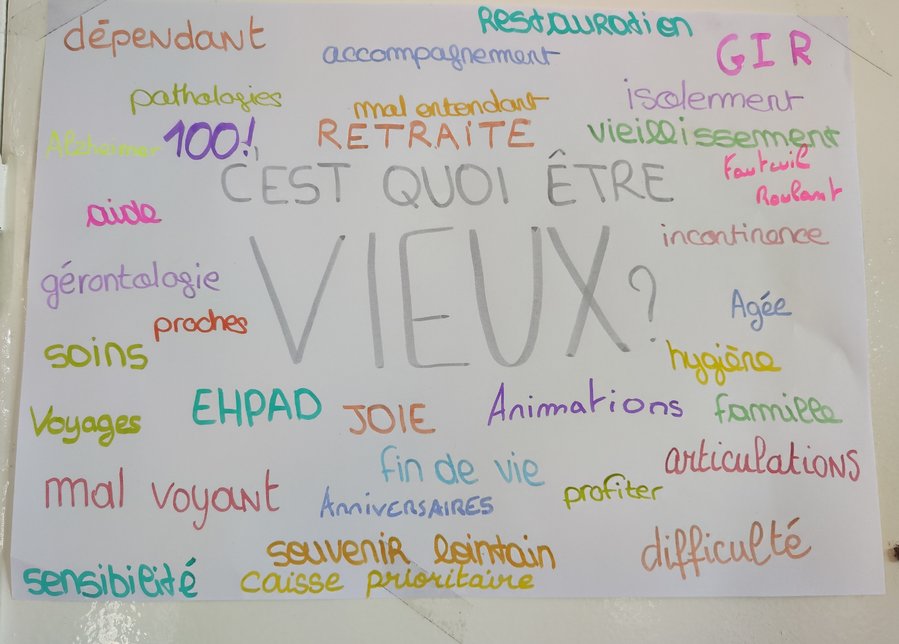 dépendant
Restauration
accompagnement
GIR
pathologies
mal entendant
isolement
Alzheimer
100!
RETRAITE
vieillissement
C'EST QUOI ÊTRE
Fauteuil
Roulant
aide
VIEUX?
incontinence
gérontologie
Agée
proches
soins
hygiène
Voyages
EHPAD
JOIE
Animations
famille
mal voyant
fin de vie
articulations
Anniversaires
profiter
souvenir lointain
difficulté
sensibilité
caisse prioritaire